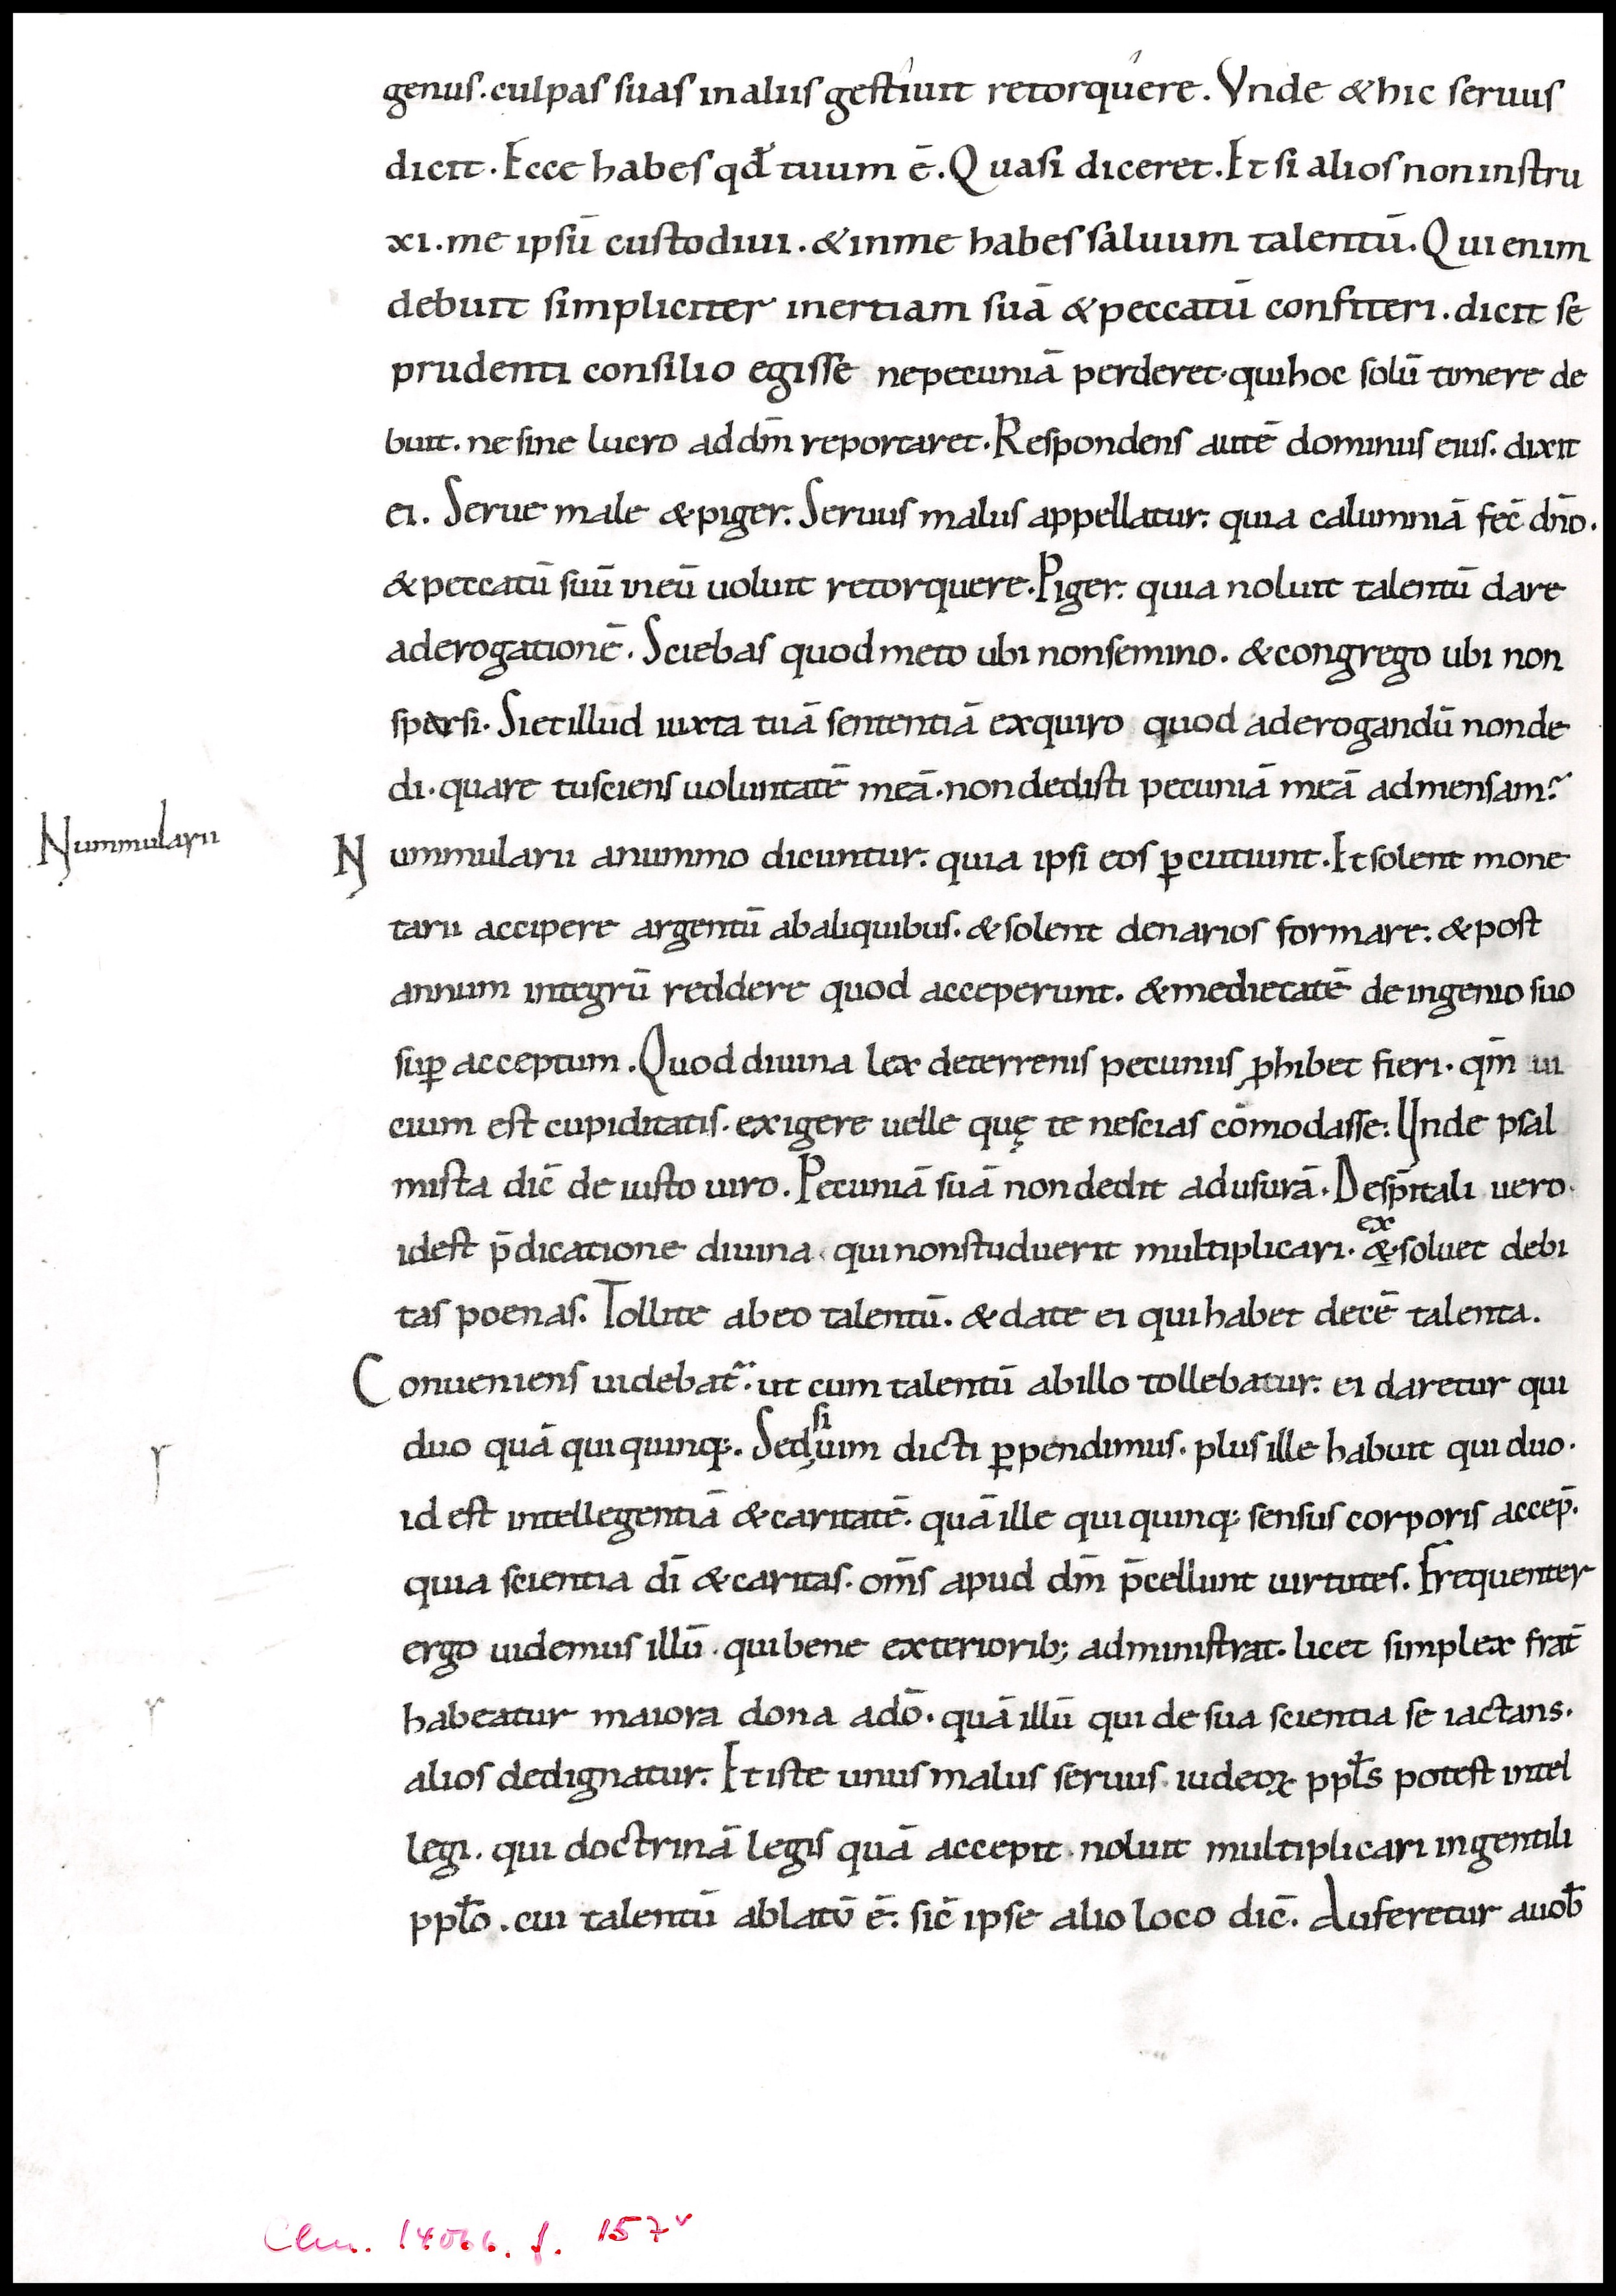 genus. culpas suas inaliis gestiuit retorquere. Vnde & hic seruus
dicit. Ecce habes qđ tuum ē. Quasi diceret. Et si alios non instru
xi. me ipsū custodiui. & inme habes saluum talentū. Qui enim
debuit simpliciter inertiam suā & peccatū confiteri. dicit se
prudenti consilio egisse nepecuniā perderet. qui hoc solū timere de
buit. ne sine lucro ad dm̄ reportaret. Respondens autē dominus eius. dixit
ei. Serue male & piger. Seruus malus appellatur. quia calumniā fec̄ dn̄o.
& peccatū suū ineū uoluit retorquere. Piger. quia noluit talentū dare
aderogationē. Sciebas quod meto ubi nonsemino. & congrego ubi non
sparsi. Si et illud iuxta tuā sententiā exquiro quod aderogandū nonde
di. quare tu sciens uoluntatē meā. non dedisti pecuniā meā admensam?
Nummularii
Nummularii anummo dicuntur. quia ipsi eos ꝑcutiunt. Et solent mone
tarii accipere argentū abaliquibus. & solent denarios formare. & post
annum integrū reddere quod acceperunt. & medietatē de ingenio suo
suꝑ acceptum. Quod diuina lex deterrenis pecuniis ꝓhibet fieri. qm̄ ui
cium est cupiditatis. exigere uelle quę te nescias cōmodasse. Unde psal
mista dic̄ de iusto uiro. Pecuniā suā non dedit adusurā. De spīritali uero.
idest p̄dicatione diuina. qui nonstuduerit multiplicari. ex &soluet debi
tas poenas. Tollite abeo talentū. & date ei qui habet decē talenta.
Conueniens uidebat̄. ut cum talentū abillo tollebatur. ei daretur qui
duo quā qui quinq;. Sed si uim dicti ꝑpendimus. plus ille habuit qui duo.
id est intellegentiā & caritatē. quā ille qui quinq; sensus corporis accep̄.
quia scientia dī & caritas. om̄s apud dm̄ p̄cellunt uirtutes. Frequenter
ergo uidemus illū. qui bene exteriorib; administrat. licet simplex frat̄
habeatur maiora dona adō. quā illū qui de sua scientia se iactans.
alios dedignatur. Et iste unus malus seruus. iudeoꝝ ppls̄ potest intel
legi. qui doctrinā legis quā accepit. noluit multiplicari in gentili
pplō. cui talentū ablatū ē. sic̄ ipse alio loco dic̄. Auferetur auob̄
Clm. 14066. f. 157v